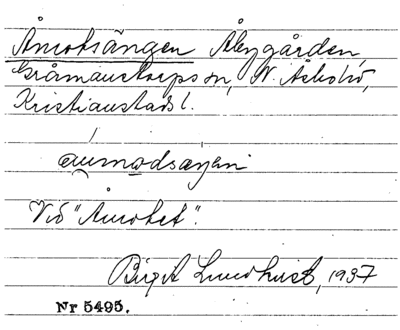 Åmotsängen Åbygården,
Gråmanstorps sn, N. Åsbohd,
Kristianstads l.
åumodsæŋen
Vid "Åmotet".
Birgit Lundkvist, 1937
Nr 5495.